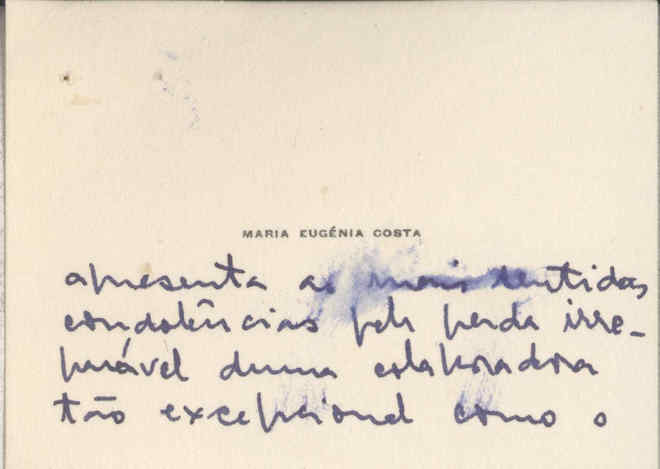 MARIA EUGÉNIA COSTA
apresenta as mais sentidas
condolências pela perda irre-
parável duma colaboradora
tão excepcional como o